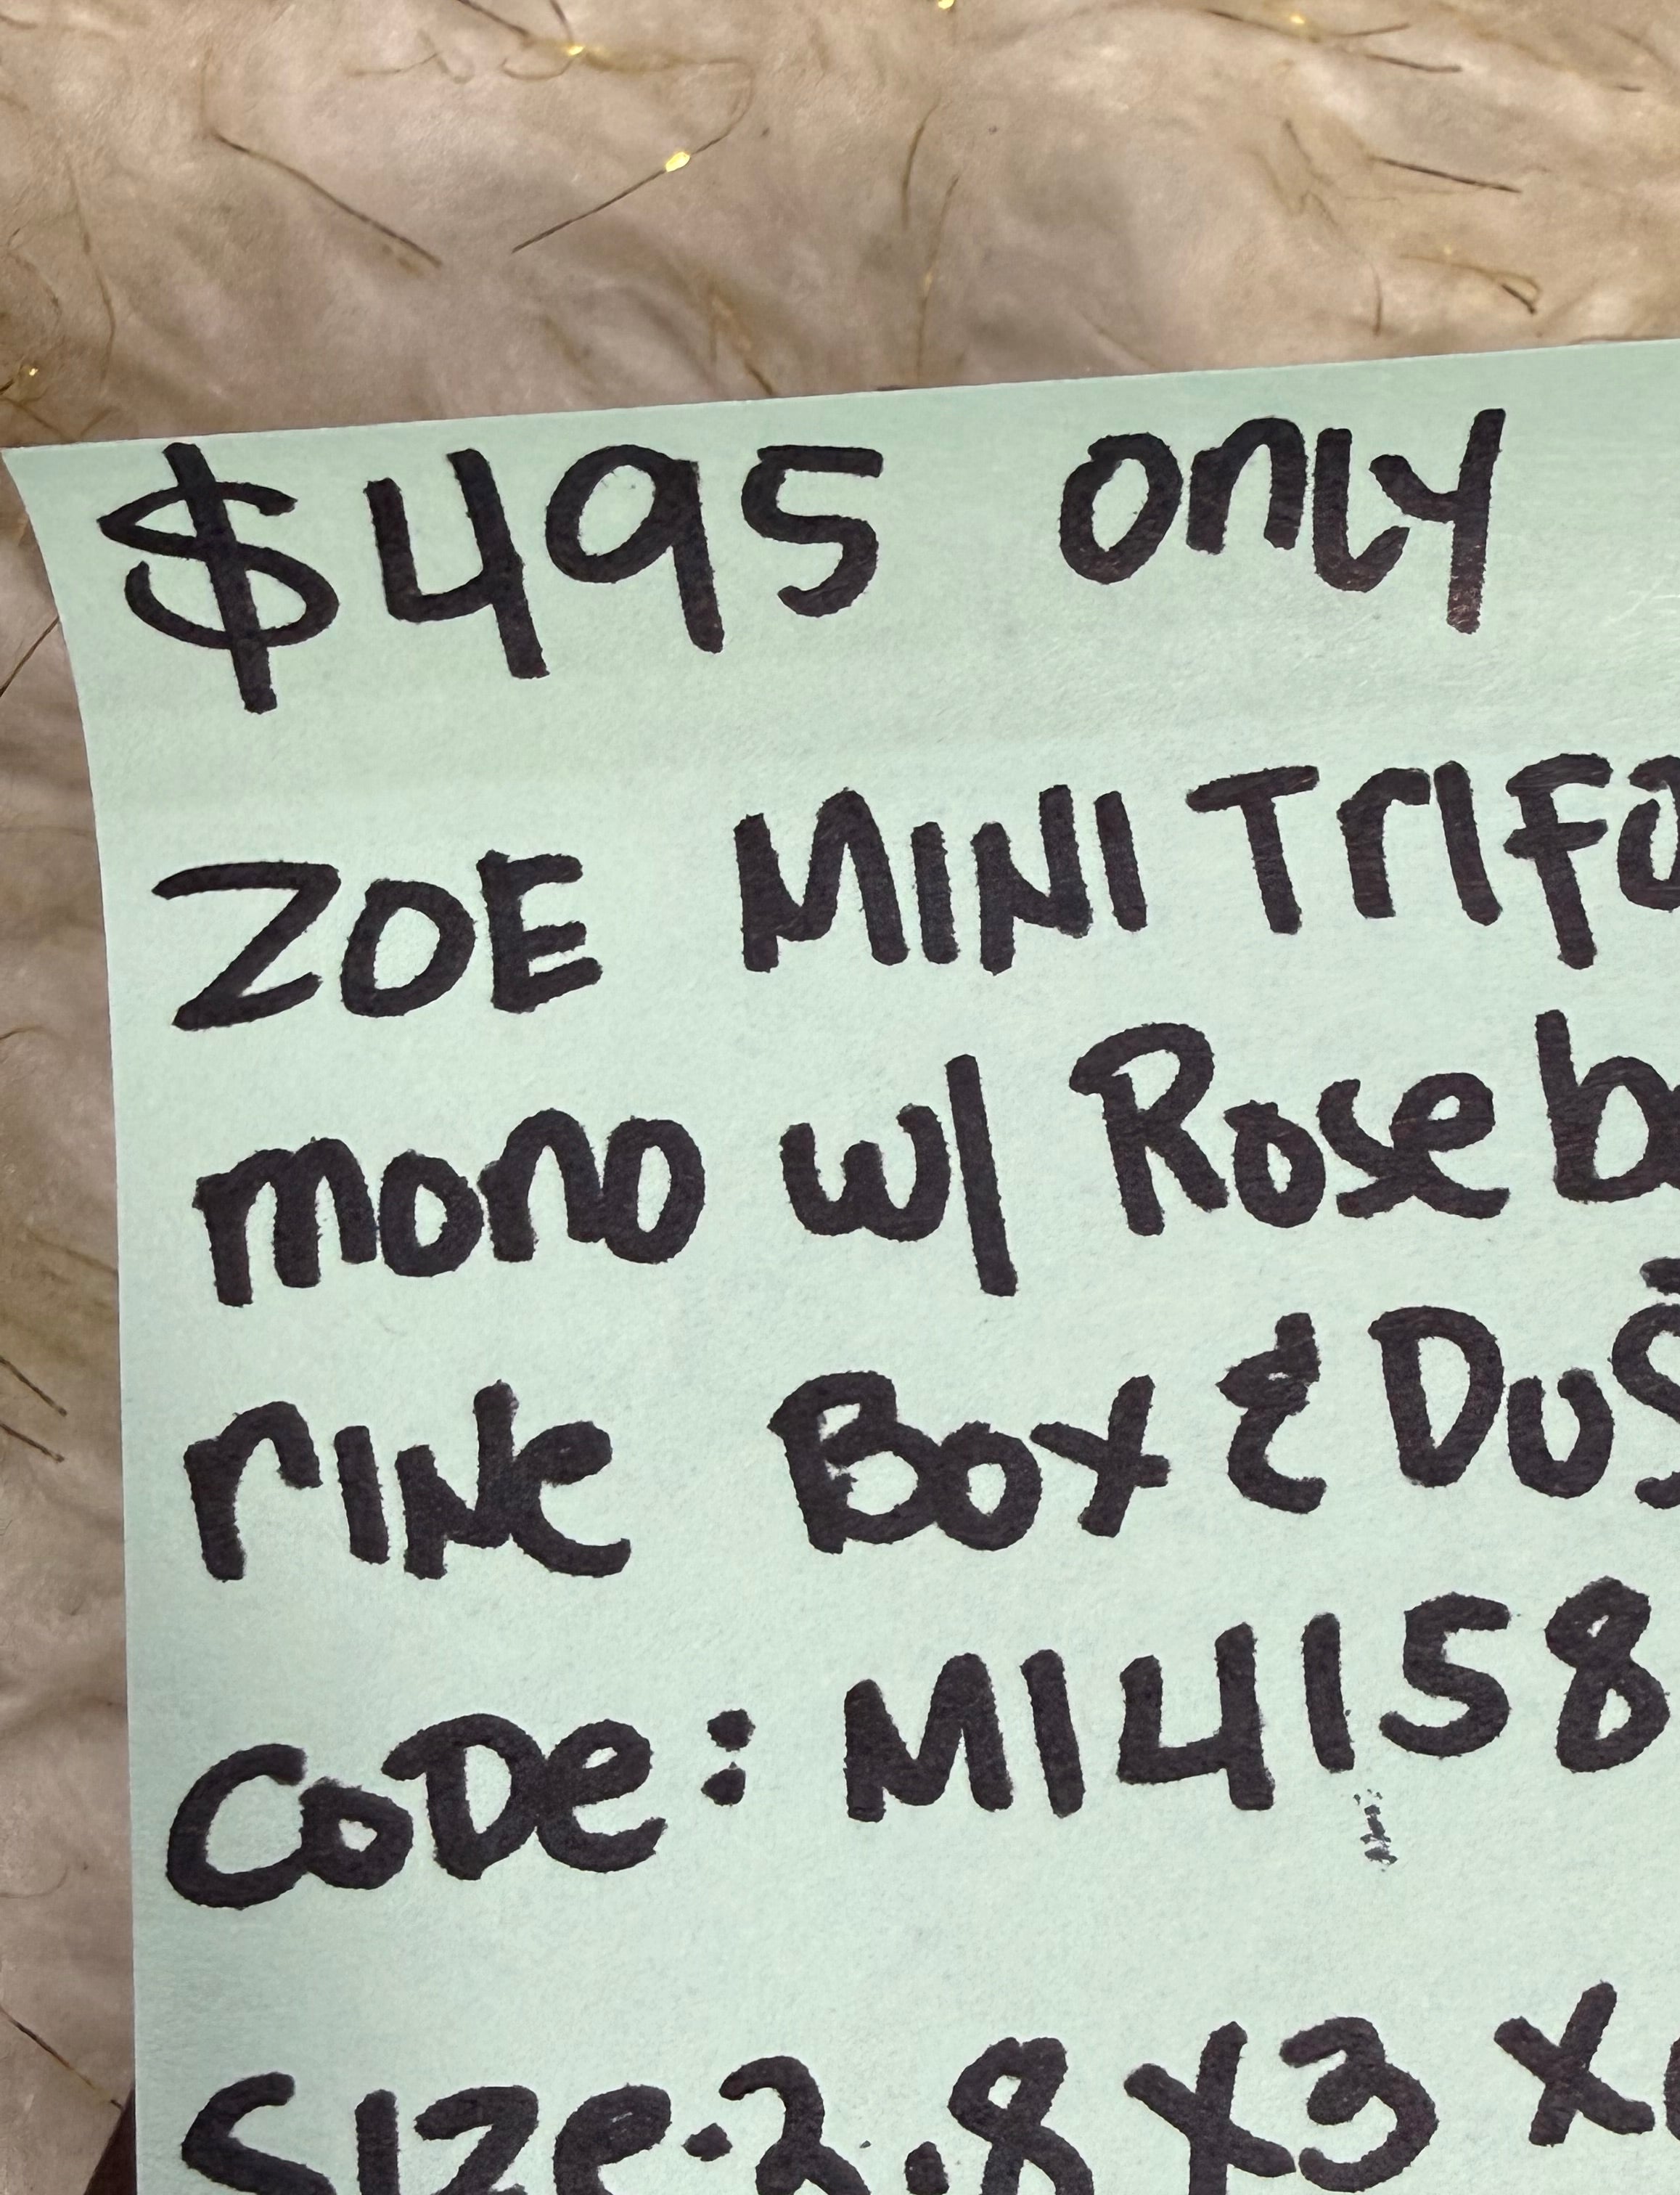 $495 only
ZOE MINI Trifo
mono w/ Rose b
rINK Box & Dus
CODe: M14158
SIZe: 2.8 X3 X